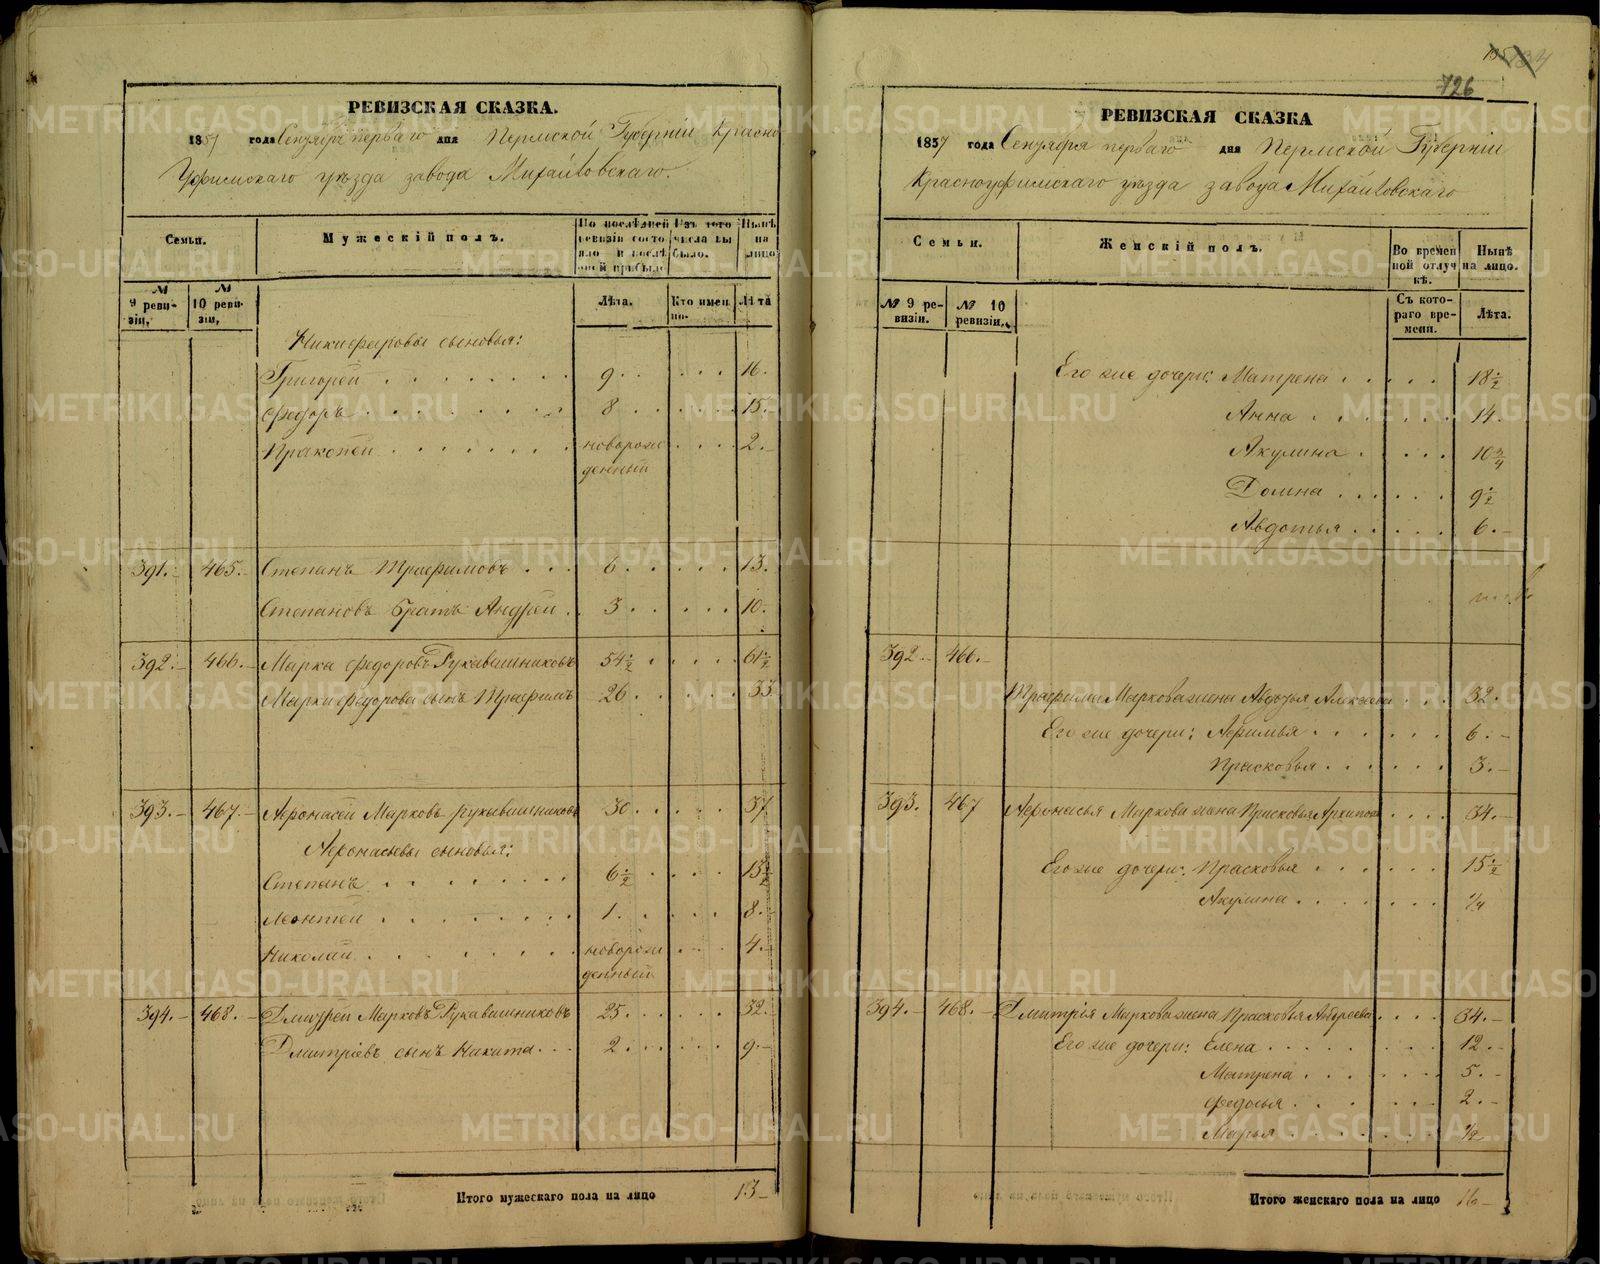 РЕВИЗСКАЯ СКАЗКА.
1857 года Сентября перваго дня Пермской Губерніи Красно
Уфимскаго уѣзда завода Михайловскаго.
Семьи.
Мужескій полъ.
По послѣдней ревизіи состояло и послѣ оной прибыло
Изъ того числа выбыло.
Нынѣ на лицо
№ 9 ревизіи,
№ 10 ревизіи,
Лѣта.
Кто именно.
Лѣта
Никифоровы сыновья:
Григорей 9 16.
Федоръ 8 15.
Пракопей новорожденный 2.
391. 465. Степанъ Трафимовъ 6 13.
Степановъ братъ Андрей 3 10.
392. 466. Марка Федоровъ Рукавишниковъ 54½ 61½
Марки Федорова сынъ Трафимъ 26 33
393. 467. Афонасей Марковъ Рукавишниковъ 30 37
Афонасьевы сыновья:
Степанъ 6½ 13½
Леонтей 1. 8.
Николай новорожденный 4.
394. 468. Дмитрей Марковъ Рукавишниковъ 25 32.
Дмитріевъ сынъ Никита 2 9.
Итого мужескаго пола на лицо 13
726
РЕВИЗСКАЯ СКАЗКА
1857 года Сентября перваго дня Пермской Губерніи
Красноуфимскаго уѣзда завода Михайловскаго
Семьи.
Женскій полъ.
Во временной отлучкѣ.
Нынѣ на лицо.
№ 9 ревизіи.
№ 10 ревизіи,
Съ котораго времени.
Лѣта.
Его же дочери: Матрена 18½
Анна 14.
Акулина 10¾
Домна 9½
Авдотья 6.
392 466.
Трафима Маркова жена Авдотья Алексеева 32.
Его же дочери: Афимья 6.
Прасковья 3.
393. 467 Афонасья Маркова жена Прасковья Архипова 34.
Его же дочери: Прасковья 15½
Акулина ¼
394. 468. Дмитрія Маркова жена Прасковья Андреева 34.
Его же дочери: Елена 12.
Матрена 5.
Федосья 2.
Марья ½
Итого женскаго пола на лицо 16
METRIKI.GASO-URAL.RU